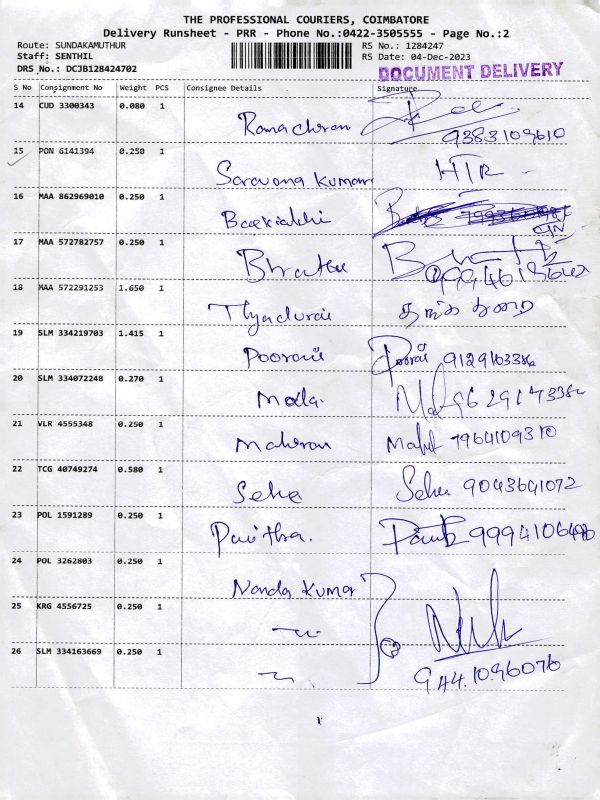 THE PROFESSIONAL COURIERS, COIMBATORE
Delivery Runsheet - PRR - Phone No.:0422-3505555 - Page No.:2
Route: SUNDAKAMUTHUR RS No.: 1284247
Staff: SENTHIL RS Date: 04-Dec-2023
DRS No.: DCJB128424702 DOCUMENT DELIVERY
S No Consignment No Weight PCS Consignee Details Signature
14 CUD 3300343 0.080 1
9383109610
15 PON 6141394 0.250 1
Saravana Kumar HTR
16 MAA 862969010 0.250 1
17 MAA 572782757 0.250 1
18 MAA 572291253 1.650 1
Thyadurai தங்கதுரை
19 SLM 334219703 1.415 1
Poorani
20 SLM 334072248 0.270 1
Mala.
21 VLR 4555348 0.250 1
7964109310
22 TCG 40749274 0.580 1
9043641072
23 POL 1591289 0.250 1
Pavithra.
24 POL 3262803 0.250 1
Nanda Kumar
25 KRG 4556725 0.250 1
26 SLM 334163669 0.250 1
944.1096076